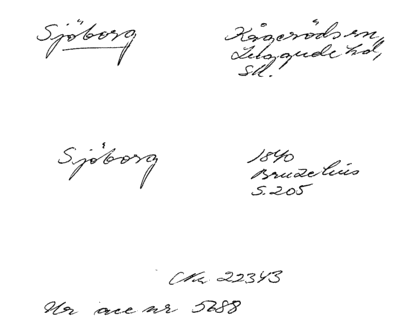 Sjöborg Kågeröds sn,
Luggude hd,
Sk.
Sjöborg 1840
Bruzelius
S. 205
22343
Ur acc nr 5688